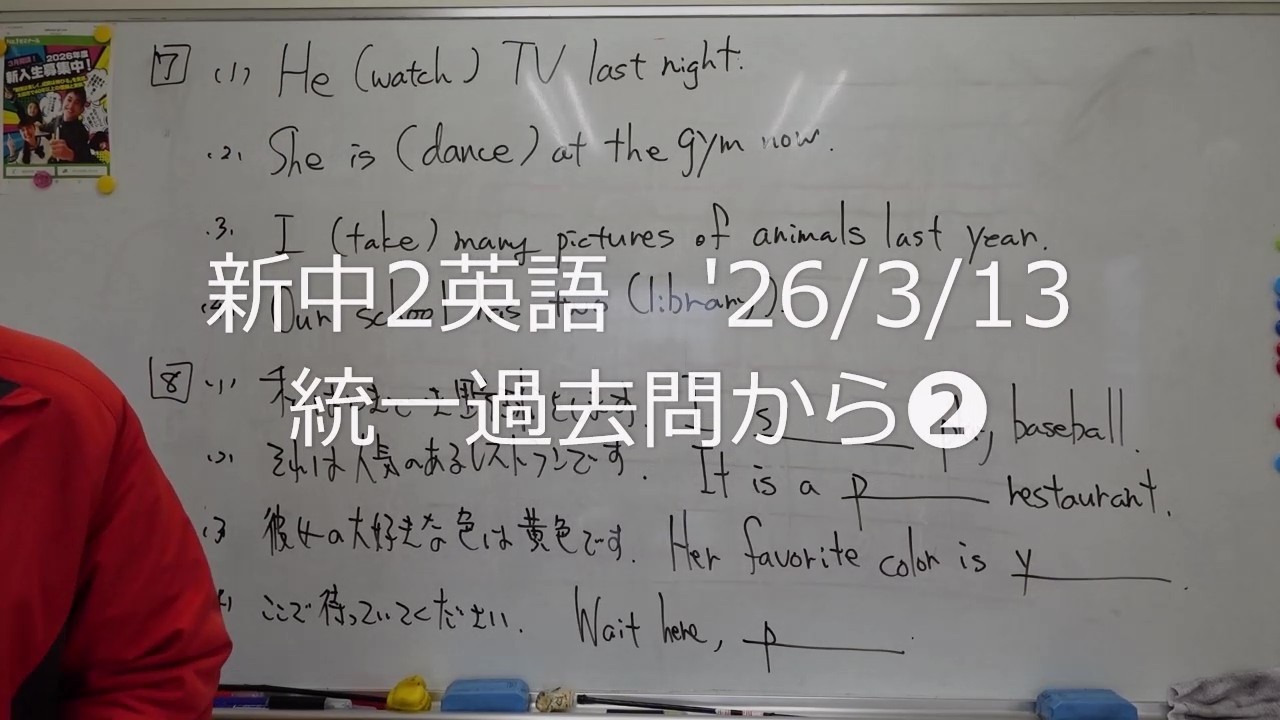 2026年度
新入生募集中!
7 (1) He (watch) TV last night.
(2) She is (dance) at the gym now.
(3) I (take) many pictures of animals last year.
Our school has two (library).
新中2英語 '26/3/13
統一過去問から❷
8 (1) I s______ play baseball.
(2) それは人気のあるレストランです. It is a p______ restaurant.
(3) 彼女の大好きな色は黄色です. Her favorite color is y______.
ここで待っていてください. Wait here, p______.